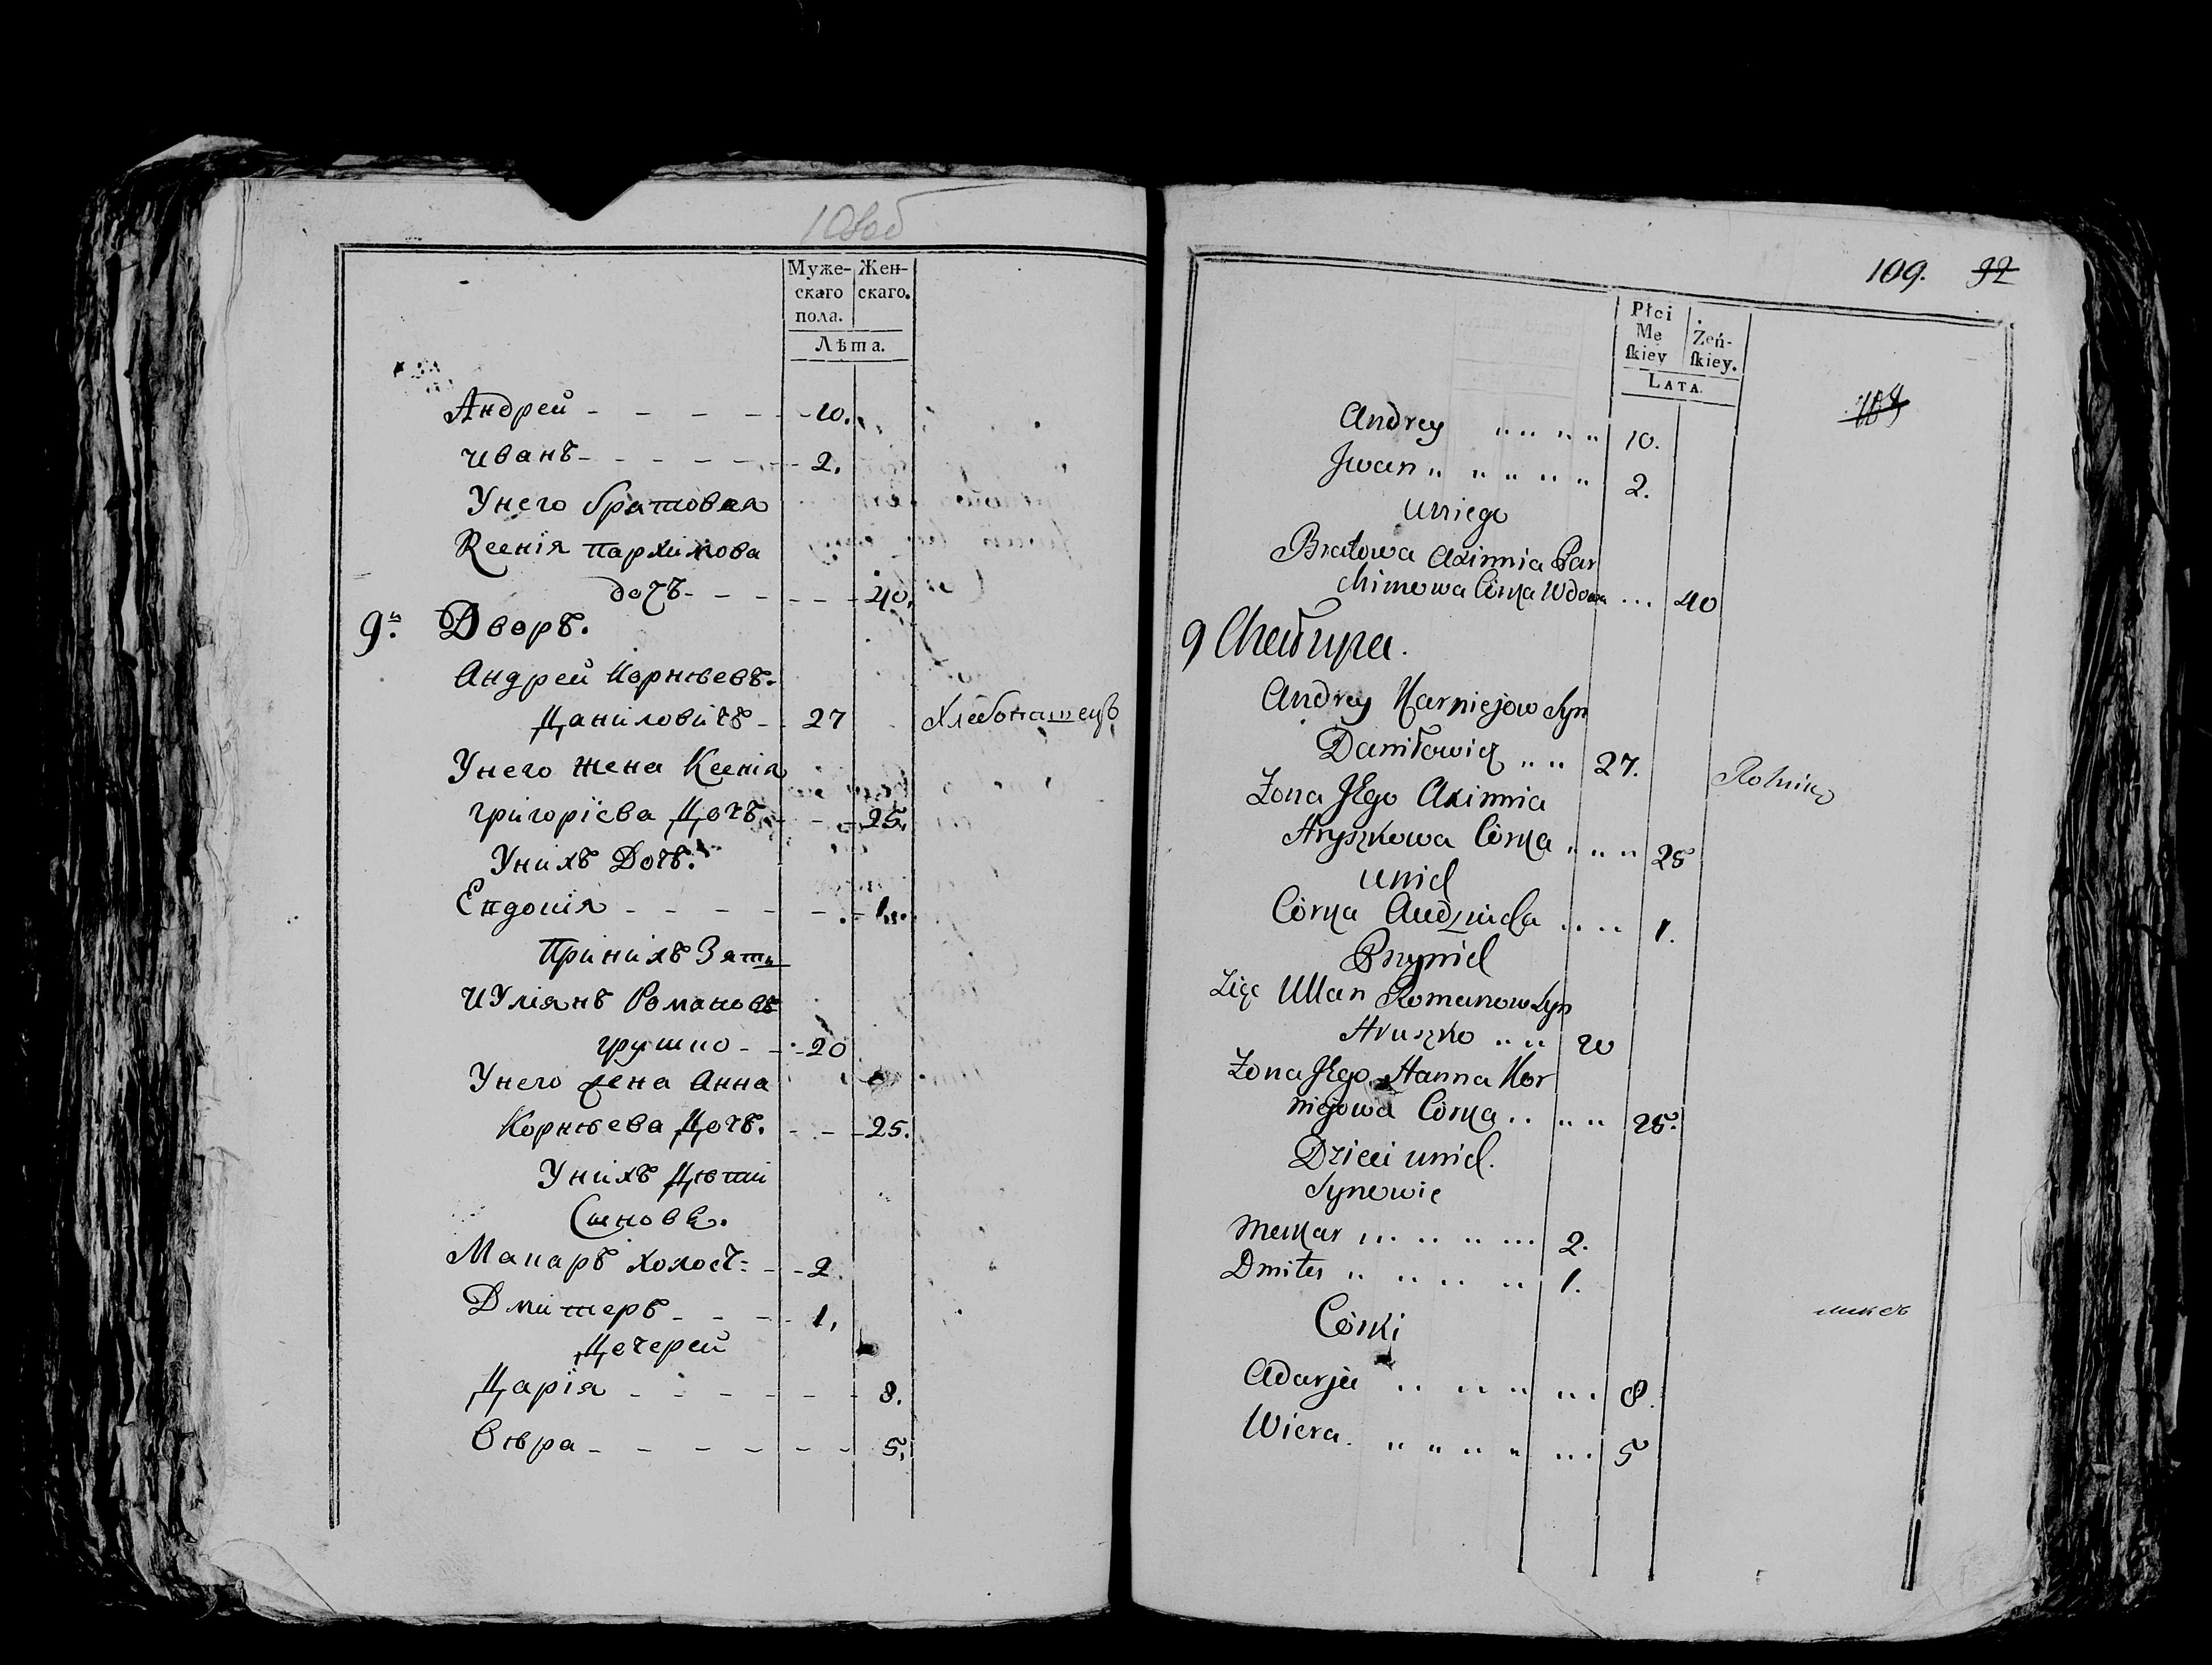 108об
Муже- Жен-
скаго скаго.
пола.
Лѣта.
Андрей - - - - - 10.
иванъ - - - - - 2.
Унего братовая
Ксенія пархимова
дочъ - - - - - 40.
9й Дворъ.
Андрей Корнѣевъ
Даниловичъ - 27 Хлебопашецъ
Унего жена Ксенія
григоріева Дочъ - - - 25.
Унихъ Дочъ.
Евдокія - - - - - - 1.
Принихъ Зять
иУліянъ Романовъ
грушко - - 20
Унего жена Анна
Корнѣева Дочъ. - - - 25.
Унихъ Дѣти
Сыновѣ.
Макаръ холост: - - 2.
Дмитеръ - - - - 1,
Дочерей
Дарія - - - - - - 8.
Вѣра - - - - - - 5.
109. 92
Płci
Mę Żeń-
skiey skiey.
LATA.
Andrey 10.
Jwan 2.
Uniego
Bratowa Axinnia Par
chimowa Córka Wdowa ... 40
9 Chałupa.
Andrey Karniejow Syn
Daniłowicz 27. Rolnik
Żona Jego Axinnia
Hryszkowa Córka 25
Unich
Córka Audzincia 1.
Przynich
Zięć Ullan Romanow Syn
Hruszko 20
Żona Jego Hanna Kor
niejowa Córka 25.
Dzieci unich.
Synowie
Makar 2.
Dmiter 1.
Córki
Adarja 8.
Wiera. 5